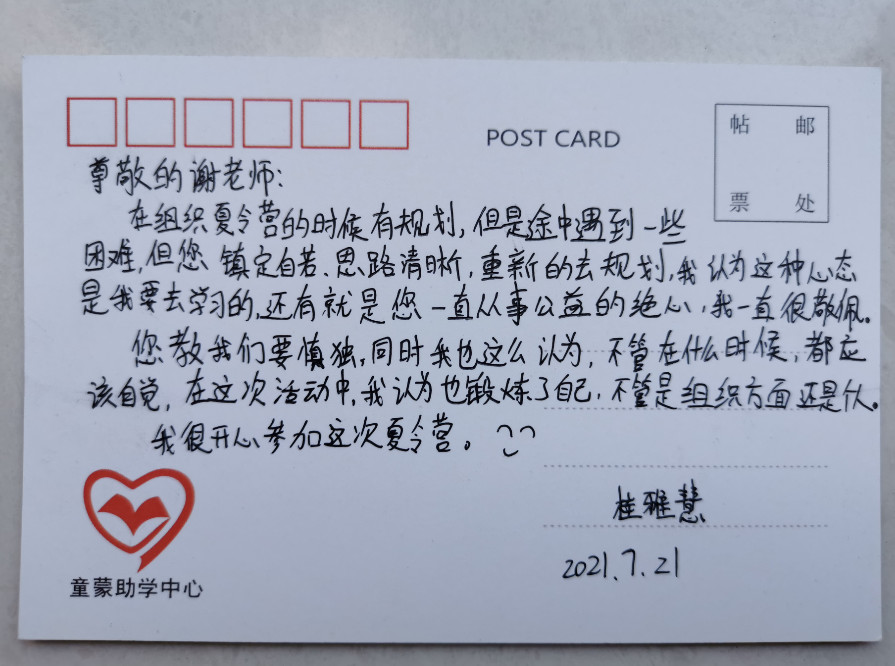 POST CARD
帖 邮
票 处
尊敬的谢老师:
在组织夏令营的时候有规划,但是途中遇到一些
困难,但您 镇定自若、思路清晰,重新的去规划,我认为这种心态
是我要去学习的,还有就是您一直从事公益的绝心,我一直很敬佩。
您教我们要慎独,同时我也这么认为,不管在什么时候,都应
该自觉,在这次活动中,我认为也锻炼了自己,不管是组织方面还是
我很开心参加这次夏令营。
桂雅慧
2021.7.21
童蒙助学中心